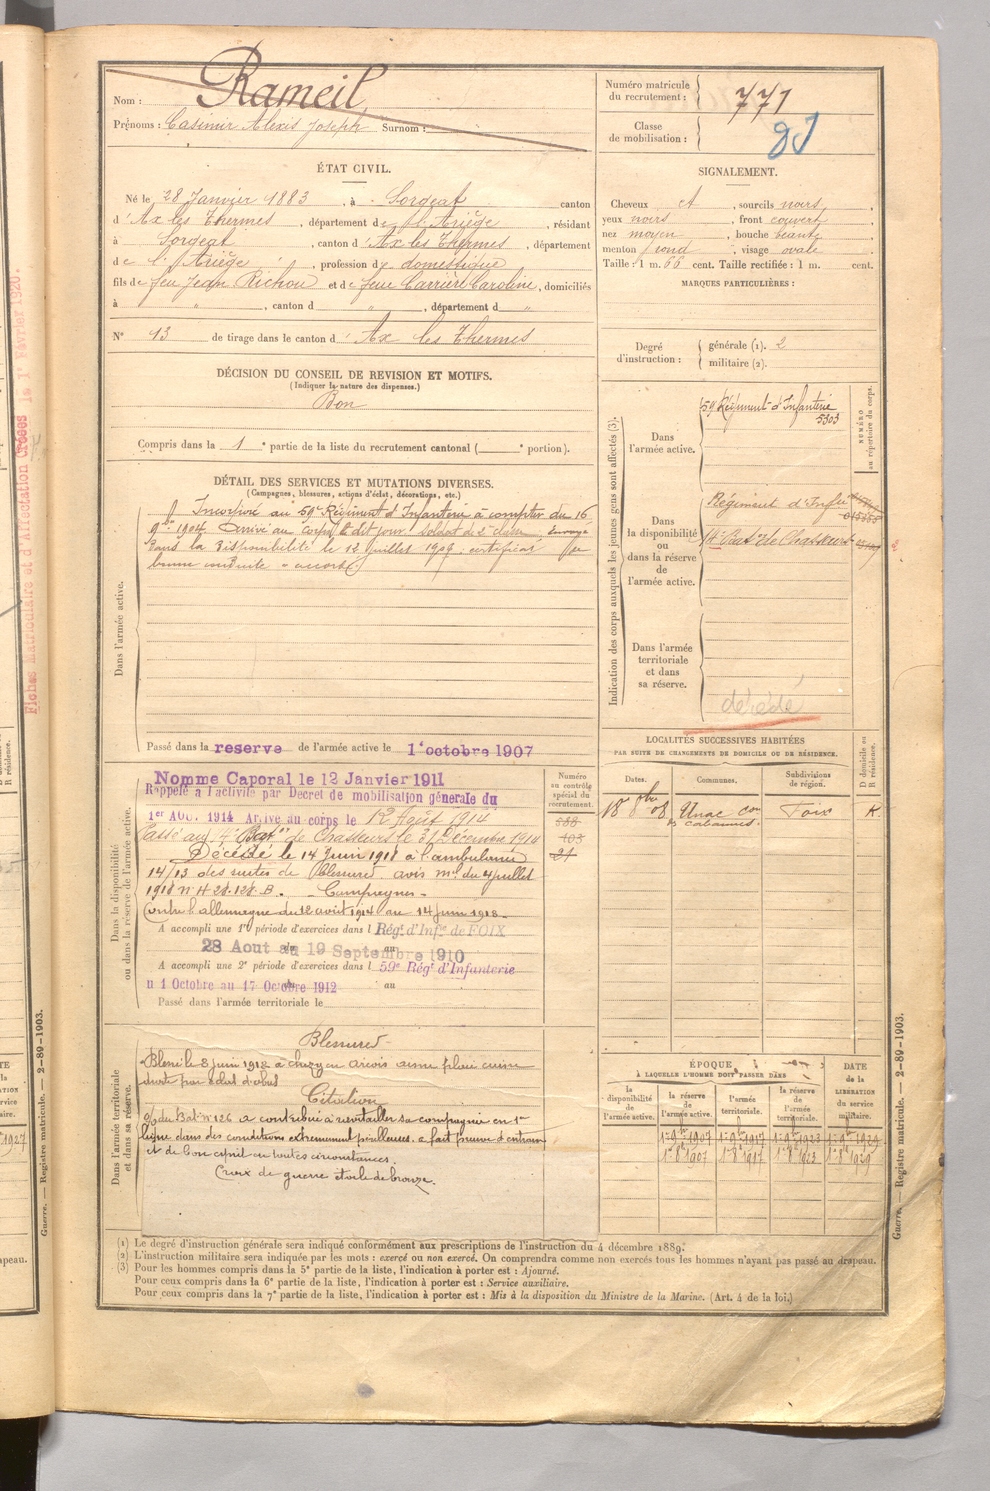 Nom : Rameil
Prénoms : Casimir Alexis Joseph Surnom :
Numéro matricule du recrutement : 771
Classe de mobilisation :
ÉTAT CIVIL.
Né le 28 Janvier 1883, à Sorgeat canton
d'Ax les Thermes, département de l'Ariège, résidant
à Sorgeat, canton d'Ax les Thermes, département
de l'Ariège, profession de domestique
fils de feu Jean Richou et de feue Carrière Caroline, domiciliés
à " , canton d " , département d "
N° 13 de tirage dans le canton d'Ax les Thermes
SIGNALEMENT.
Cheveux ct, sourcils noirs,
yeux noirs, front couvert,
nez moyen, bouche béante,
menton rond, visage ovale
Taille : 1 m. 66 cent. Taille rectifiée : 1 m. cent.
MARQUES PARTICULIÈRES :
Degré d'instruction : générale (1). 2
militaire (2).
DÉCISION DU CONSEIL DE REVISION ET MOTIFS.
(Indiquer la nature des dispenses.)
Bon
Compris dans la 1e partie de la liste du recrutement cantonal ( e portion).
DÉTAIL DES SERVICES ET MUTATIONS DIVERSES.
(Campagnes, blessures, actions d'éclat, décorations, etc.)
Dans l'armée active.
Incorporé au 59e Régiment d'Infanterie à compter du 16
9bre 1904. Arrivé au corps le dit jour soldat de 2e classe. Envoyé
dans la disponibilité le 12 juillet 1907 : certificat de
bonne conduite " accordé
Passé dans la reserve de l'armée active le 1er octobre 1907
Indication des corps auxquels les jeunes gens sont affectés (3).
NUMÉRO au répertoire du corps.
Dans l'armée active.
59 Régiment d'Infanterie
5303
Dans la disponibilité ou dans la réserve de l'armée active.
Régiment d'Inf
Bat. de Chasseurs
Dans l'armée territoriale et dans sa réserve.
décédé
Dans la disponibilité ou dans la réserve de l'armée active.
Nomme Caporal le 12 Janvier 1911
Rappelé à l'activité par Decret de mobilisation générale du
1er AOU. 1914 Arrivé au corps le 12 Août 1914
Passé au 4e Bat.on de Chasseurs le 31 Décembre 1914
Décédé le 14 Juin 1918 à l'ambulance
14/13 des suites de Blessures. avis m.el du 4 juillet
1918 n° H 28.128.B. - Campagnes -
Contre l'allemagne du 12 août 1914 au 14 juin 1918 -
A accompli une 1re période d'exercices dans l Régt d'Infie de FOIX
28 Aout au 19 Septembre 1910
A accompli une 2e période d'exercices dans l 59e Régt d'Infanterie
u 1 Octobre au 17 Octobre 1912 au
Passé dans l'armée territoriale le
Numéro au contrôle spécial du recrutement.
103
21
LOCALITÉS SUCCESSIVES HABITÉES
PAR SUITE DE CHANGEMENTS DE DOMICILE OU DE RÉSIDENCE.
Dates. Communes. Subdivisions de région. D domicile ou R résidence.
18 8bre 08 Unac con les cabannes. Foix R.
Dans l'armée territoriale et dans sa réserve.
Blessures
Blessé le 8 juin 1918 à
droite par éclat d'obus
Citation
O/ du Bat n° 126 a contribué à ravitailler sa compagnie en 1re
ligne dans des conditions extrêmement périlleuses. a fait preuve d'entrain
et de bon esprit en toutes circonstances.
Croix de guerre étoile de bronze.
ÉPOQUE
À LAQUELLE L'HOMME DOIT PASSER DANS
la disponibilité de l'armée active. la réserve de l'armée active. l'armée territoriale. la réserve de l'armée territoriale. DATE de la LIBÉRATION du service militaire.
1er 9bre 1907 1er 9bre 1917 1er 9bre 1923 1er 9bre 1929
1er 8bre 1907 1er 8bre 1917 1er 8bre 1923 1er 8bre 1929
(1) Le degré d'instruction générale sera indiqué conformément aux prescriptions de l'instruction du 4 décembre 1889.
(2) L'instruction militaire sera indiquée par les mots : exercé ou non exercé. On comprendra comme non exercés tous les hommes n'ayant pas passé au drapeau.
(3) Pour les hommes compris dans la 5e partie de la liste, l'indication à porter est : Ajourné.
Pour ceux compris dans la 6e partie de la liste, l'indication à porter est : Service auxiliaire.
Pour ceux compris dans la 7e partie de la liste, l'indication à porter est : Mis à la disposition du Ministre de la Marine. (Art. 4 de la loi.)
Guerre. — Registre matricule. — 2-89-1903.
Guerre. — Registre matricule. — 2-89-1903.
Fiches Matriculaire et d'Affectation Créées le 1er Février 1920.